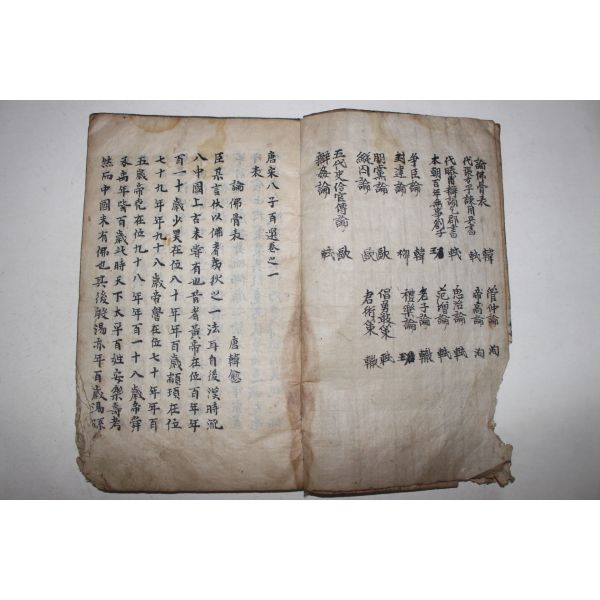 論佛骨表 韓
代張方平諫用兵書 軾
代滕甫辯謗乞郡書 軾
本朝百年無事劄子
爭臣論 韓
封建論 柳
朋黨論 歐
縱囚論 歐
五代史伶官傳論 歐
辨姦論
管仲論 洵
帝高論 洵
思治論 軾
范增論 軾
老子論 轍
禮樂論
倡勇敢策 軾
君術策 轍
唐宋八子百選卷之一
表
論佛骨表 唐韓愈
臣某言伏以佛者夷狄之一法耳自後漢時流
入中國上古未嘗有也昔者黃帝在位百年年
百一十歲少昊在位八十年年百歲顓頊在位
七十九年年九十八歲帝嚳在位七十年年百
五歲帝堯在位九十八年年百一十八歲帝舜
及禹年皆百歲此時天下太平百姓安樂壽考
然而中國未有佛也其後殷湯亦年百歲湯孫